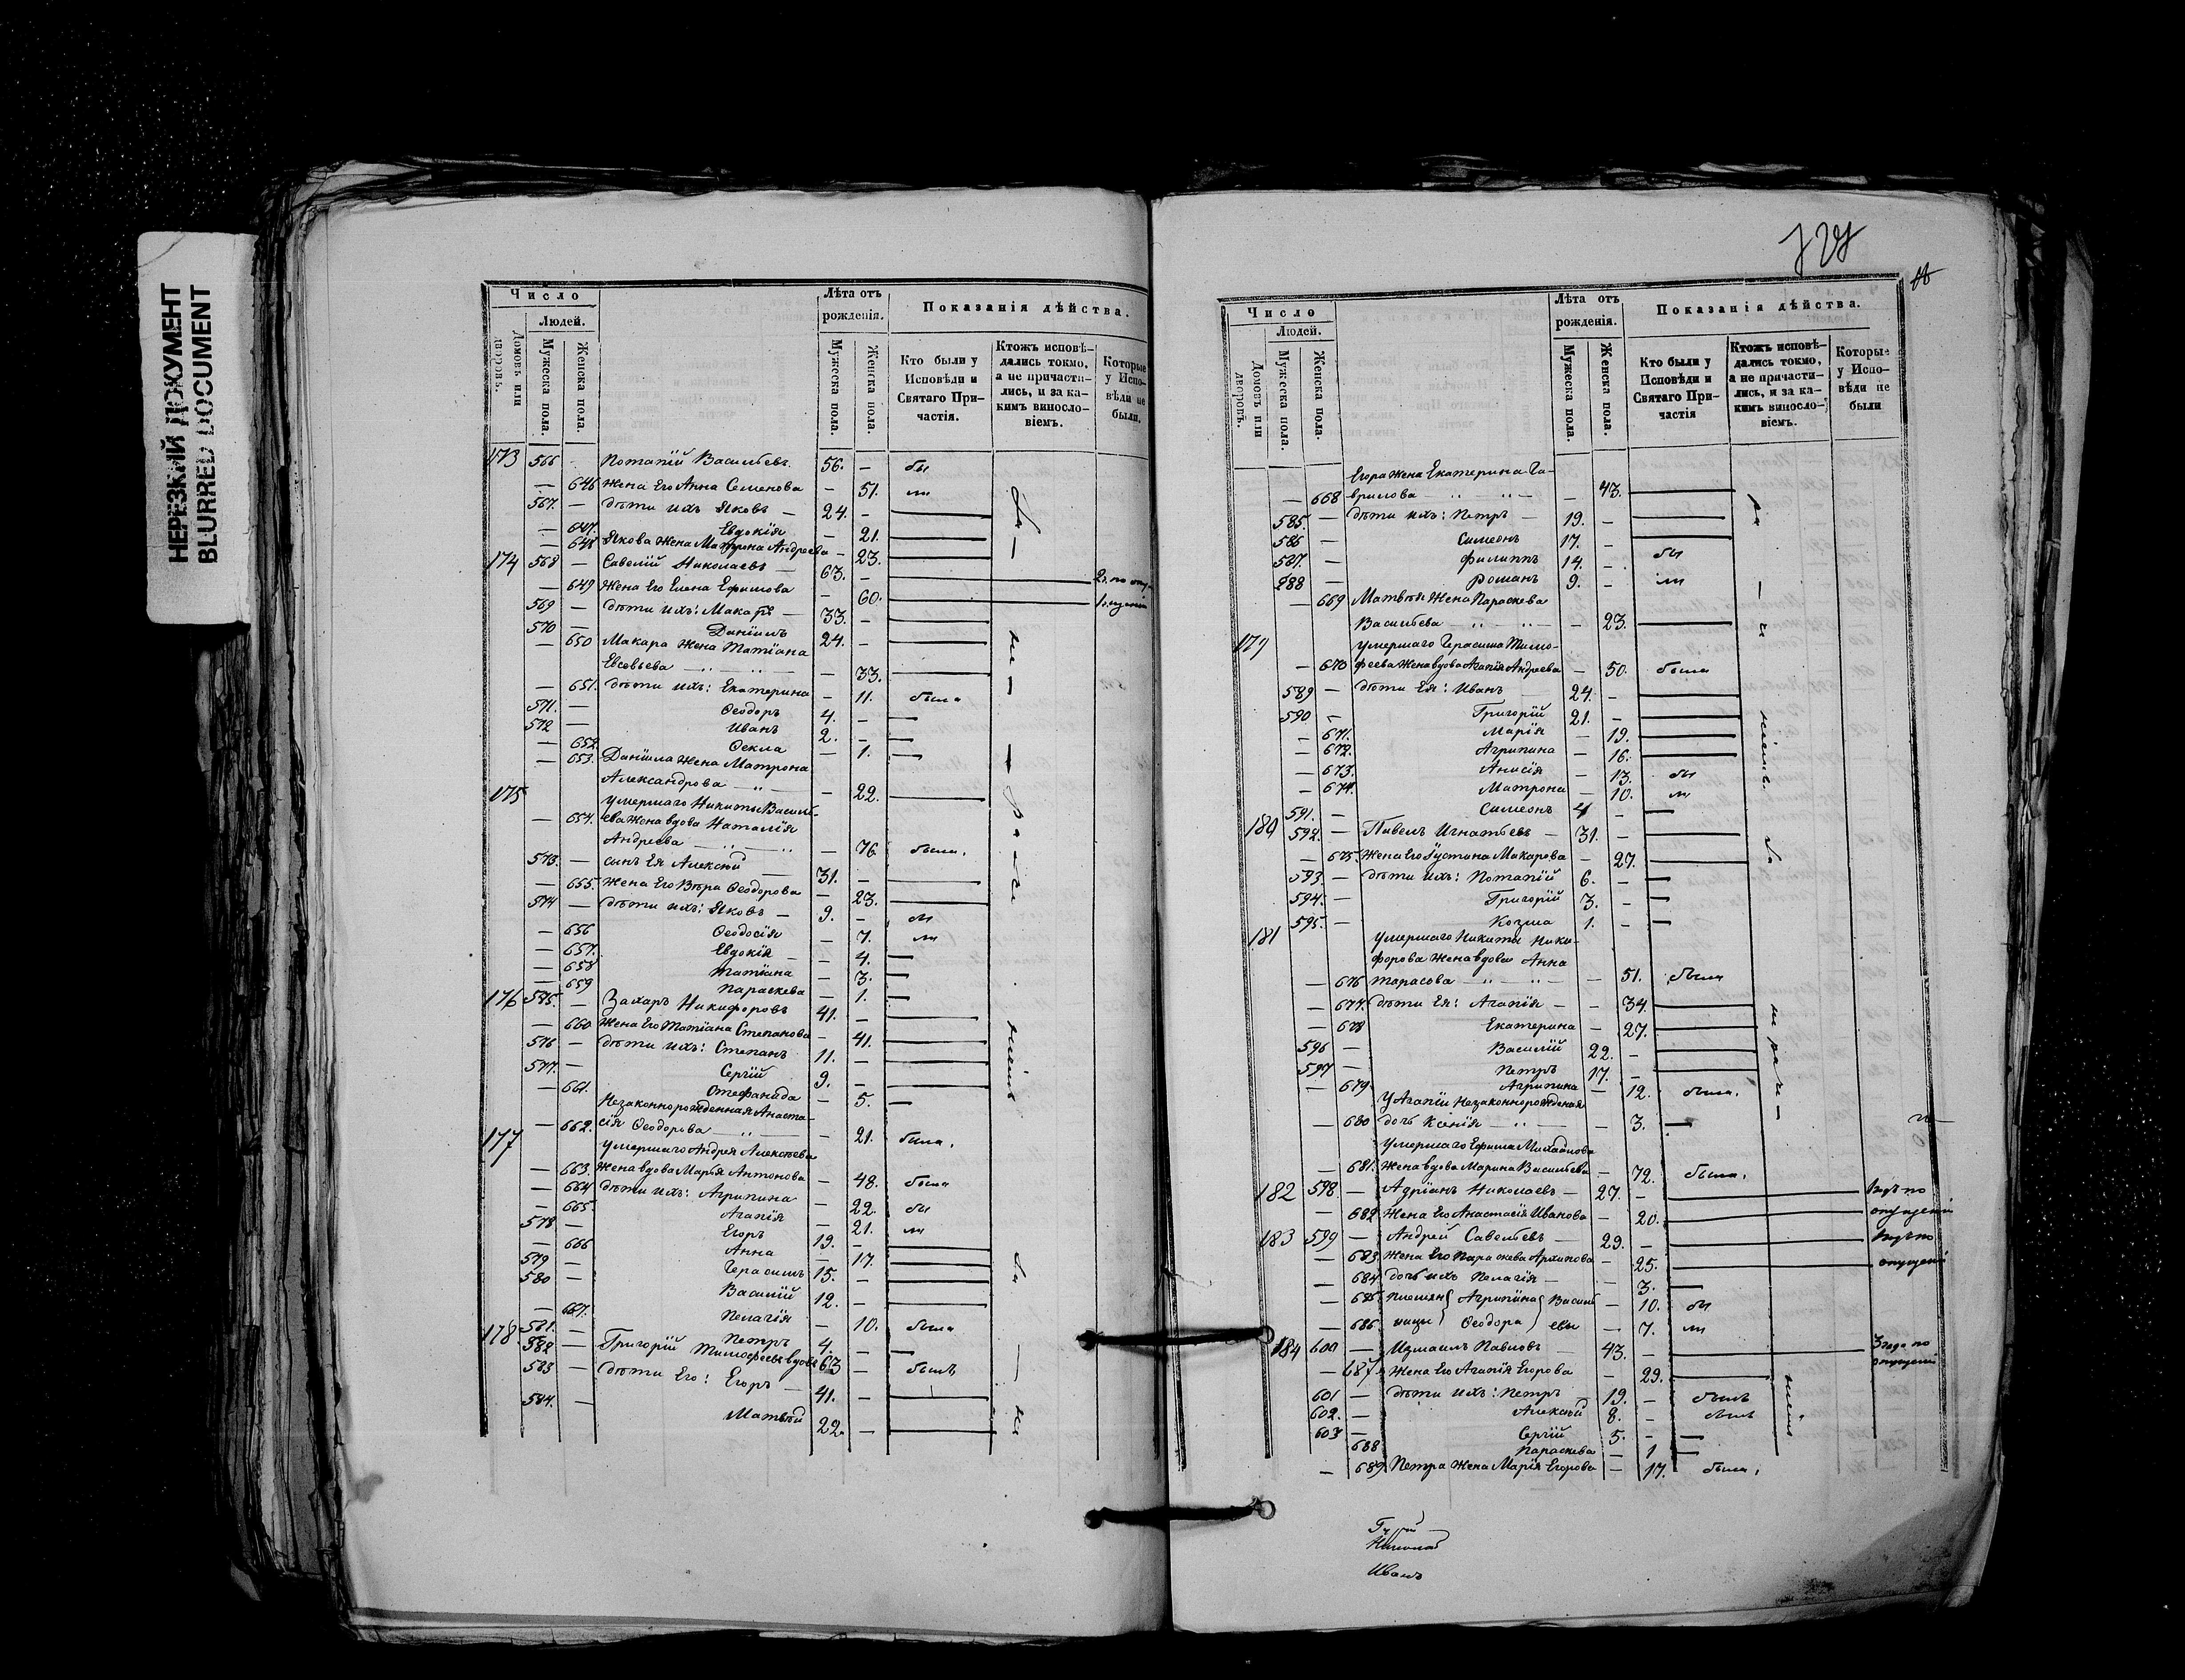 НЕРЕЗКИЙ ДОКУМЕНТ
BLURRED DOCUMENT
Число
Людей.
Домовъ или дворовъ.
Мужеска пола.
Женска пола.
Лѣта отъ рожденія.
Мужеска пола.
Женска пола.
Показанія дѣйства.
Кто были у Исповѣди и Святаго Причастія.
Ктожъ исповѣдались токмо, а не причастились, и за какимъ винословіемъ.
Которые у Исповѣди не были.
173 566 Потапій Васильевъ 56. — бы
— 646 Жена Его Анна Семенова — 51. ли
567. — дѣти ихъ Яковъ — 24. —
— 647. Евдокія — 21.
— 648 Якова Жена Матрона Андреева — 23.
174 568 — Савелій Николаевъ — 63. —
— 649 Жена Его Елена Ефимова — 60.
569 — дѣти ихъ: Макаръ — 33. —
570 — Даніилъ 24. —
— 650 Макара Жена Татіана
Евсевьева — 33.
— 651. дѣти ихъ: Екатерина — 11. была
571. — Ѳеодоръ 4. —
572 — Иванъ 2. —
— 652 Ѳекла — 1. —
— 653. Даніила Жена Матрона
Александрова — 22.
175 умершаго Никиты Василь-
— 654. ева Жена вдова Наталія
Андреева — 76 была.
573. — сынъ Ея Алексѣй — 31. —
— 655. Жена Его Вѣра Ѳеодорова — 23.
574 — дѣти ихъ: Яковъ — 9. — бы
— 656 Ѳеодосія — 7. ли
— 657. Евдокія — 4. —
— 658 Татіана — 3. —
— 659 Параскева — 1. —
176 575. — Захаръ Никифоровъ 41. —
— 660 Жена Его Татіана Степанова — 41.
576 — дѣти ихъ: Степанъ 11. —
577. — Сергій 9. —
— 661. Стефанида — 5. —
Незаконнорожденная Анаста-
— 662. сія Ѳеодорова — 21. была.
177 умершаго Андрея Алексѣева
— 663. Жена вдова Марья Антонова — 48. была
— 664 дѣти ихъ: Агрипина — 22. бы
— 665. Агапія — 21. ли
578 — Егоръ 19. —
— 666 Анна — 17.
579 — Герасимъ 15. —
580 — Василій 12. —
— 667. Пелагія — 10. была
581. — Петръ 4. —
178. 582 — Григорій Тимофеевъ вдовъ 63 — былъ
583 — дѣти Его: Егоръ — 41. —
584. — Матвѣй 22. —
Число
Людей.
Домовъ или дворовъ.
Мужеска пола.
Женска пола.
Лѣта отъ рожденія.
Мужеска пола.
Женска пола.
Показанія дѣйства.
Кто были у Исповѣди и Святаго Причастія
Ктожъ исповѣдались токмо, а не причастились, и за какимъ винословіемъ.
Которые у Исповѣди не были
Егора Жена Екатерина Га-
— 668 врилова — 43.
585. — дѣти ихъ: Петръ — 19. —
586 — Симеонъ 17. —
587. — Филиппъ 14. — бы
588 — Романъ 9. — ли
— 669 Матвѣя Жена Параскева
Васильева — 23.
179 умершаго Герасима Тимо-
— 670 феева Жена вдова Агапія Андреева — 50. была
589 — дѣти Ея: Иванъ 24. —
590 — Григорій 21. —
— 671. Марія — 19.
— 672. Агрипина — 16.
— 673. Анисія — 13. бы
— 674. Матрона — 10. ли
591. — Симеонъ 4 —
180 592. — Павелъ Игнатьевъ — 31. —
— 675. Жена Его Густина Макарова — 27.
593. — дѣти ихъ: Потапій 6. —
594. — Григорій 3. —
595. — Козма 1. —
181 умершаго Никиты Ники-
форова Жена вдова Анна
— 676 Тарасова — 51. была
— 677. дѣти Ея: Агапія — 34.
— 678 Екатерина — 27.
596 — Василій 22. —
597 — Петръ 17. —
— 679. Агрипина — 12. была.
У Агапіи Незаконнорожденная
— 680 дочь Ксенія — 3. —
умершаго Ефима Михайлова
— 681. Жена вдова Марина Васильева — 72. была.
182 598. — Адріанъ Николаевъ — 27. —
— 682 Жена Его Анастасія Иванова — 20.
183 599 — Андрей Савельевъ — 29. —
— 683 Жена Его Параскева Архипова — 25.
— 684 дочь ихъ Пелагія — 3. —
— 685 племян Агрипина Василь — 10. бы
— 686 ницы Ѳеодора евы — 7. ли
184 600 — Измаилъ Павловъ — 43. — 3 года по опущенію
— 687. Жена Его Агапія Егорова — 29.
601 — дѣти ихъ: Петръ 19. — былъ
602. — Алексѣй 8. — былъ
603 — Сергій 5. —
688 Параскева — 1 —
— 689 Петра Жена Марія Егорова — 17. была.
Николай
Иванъ